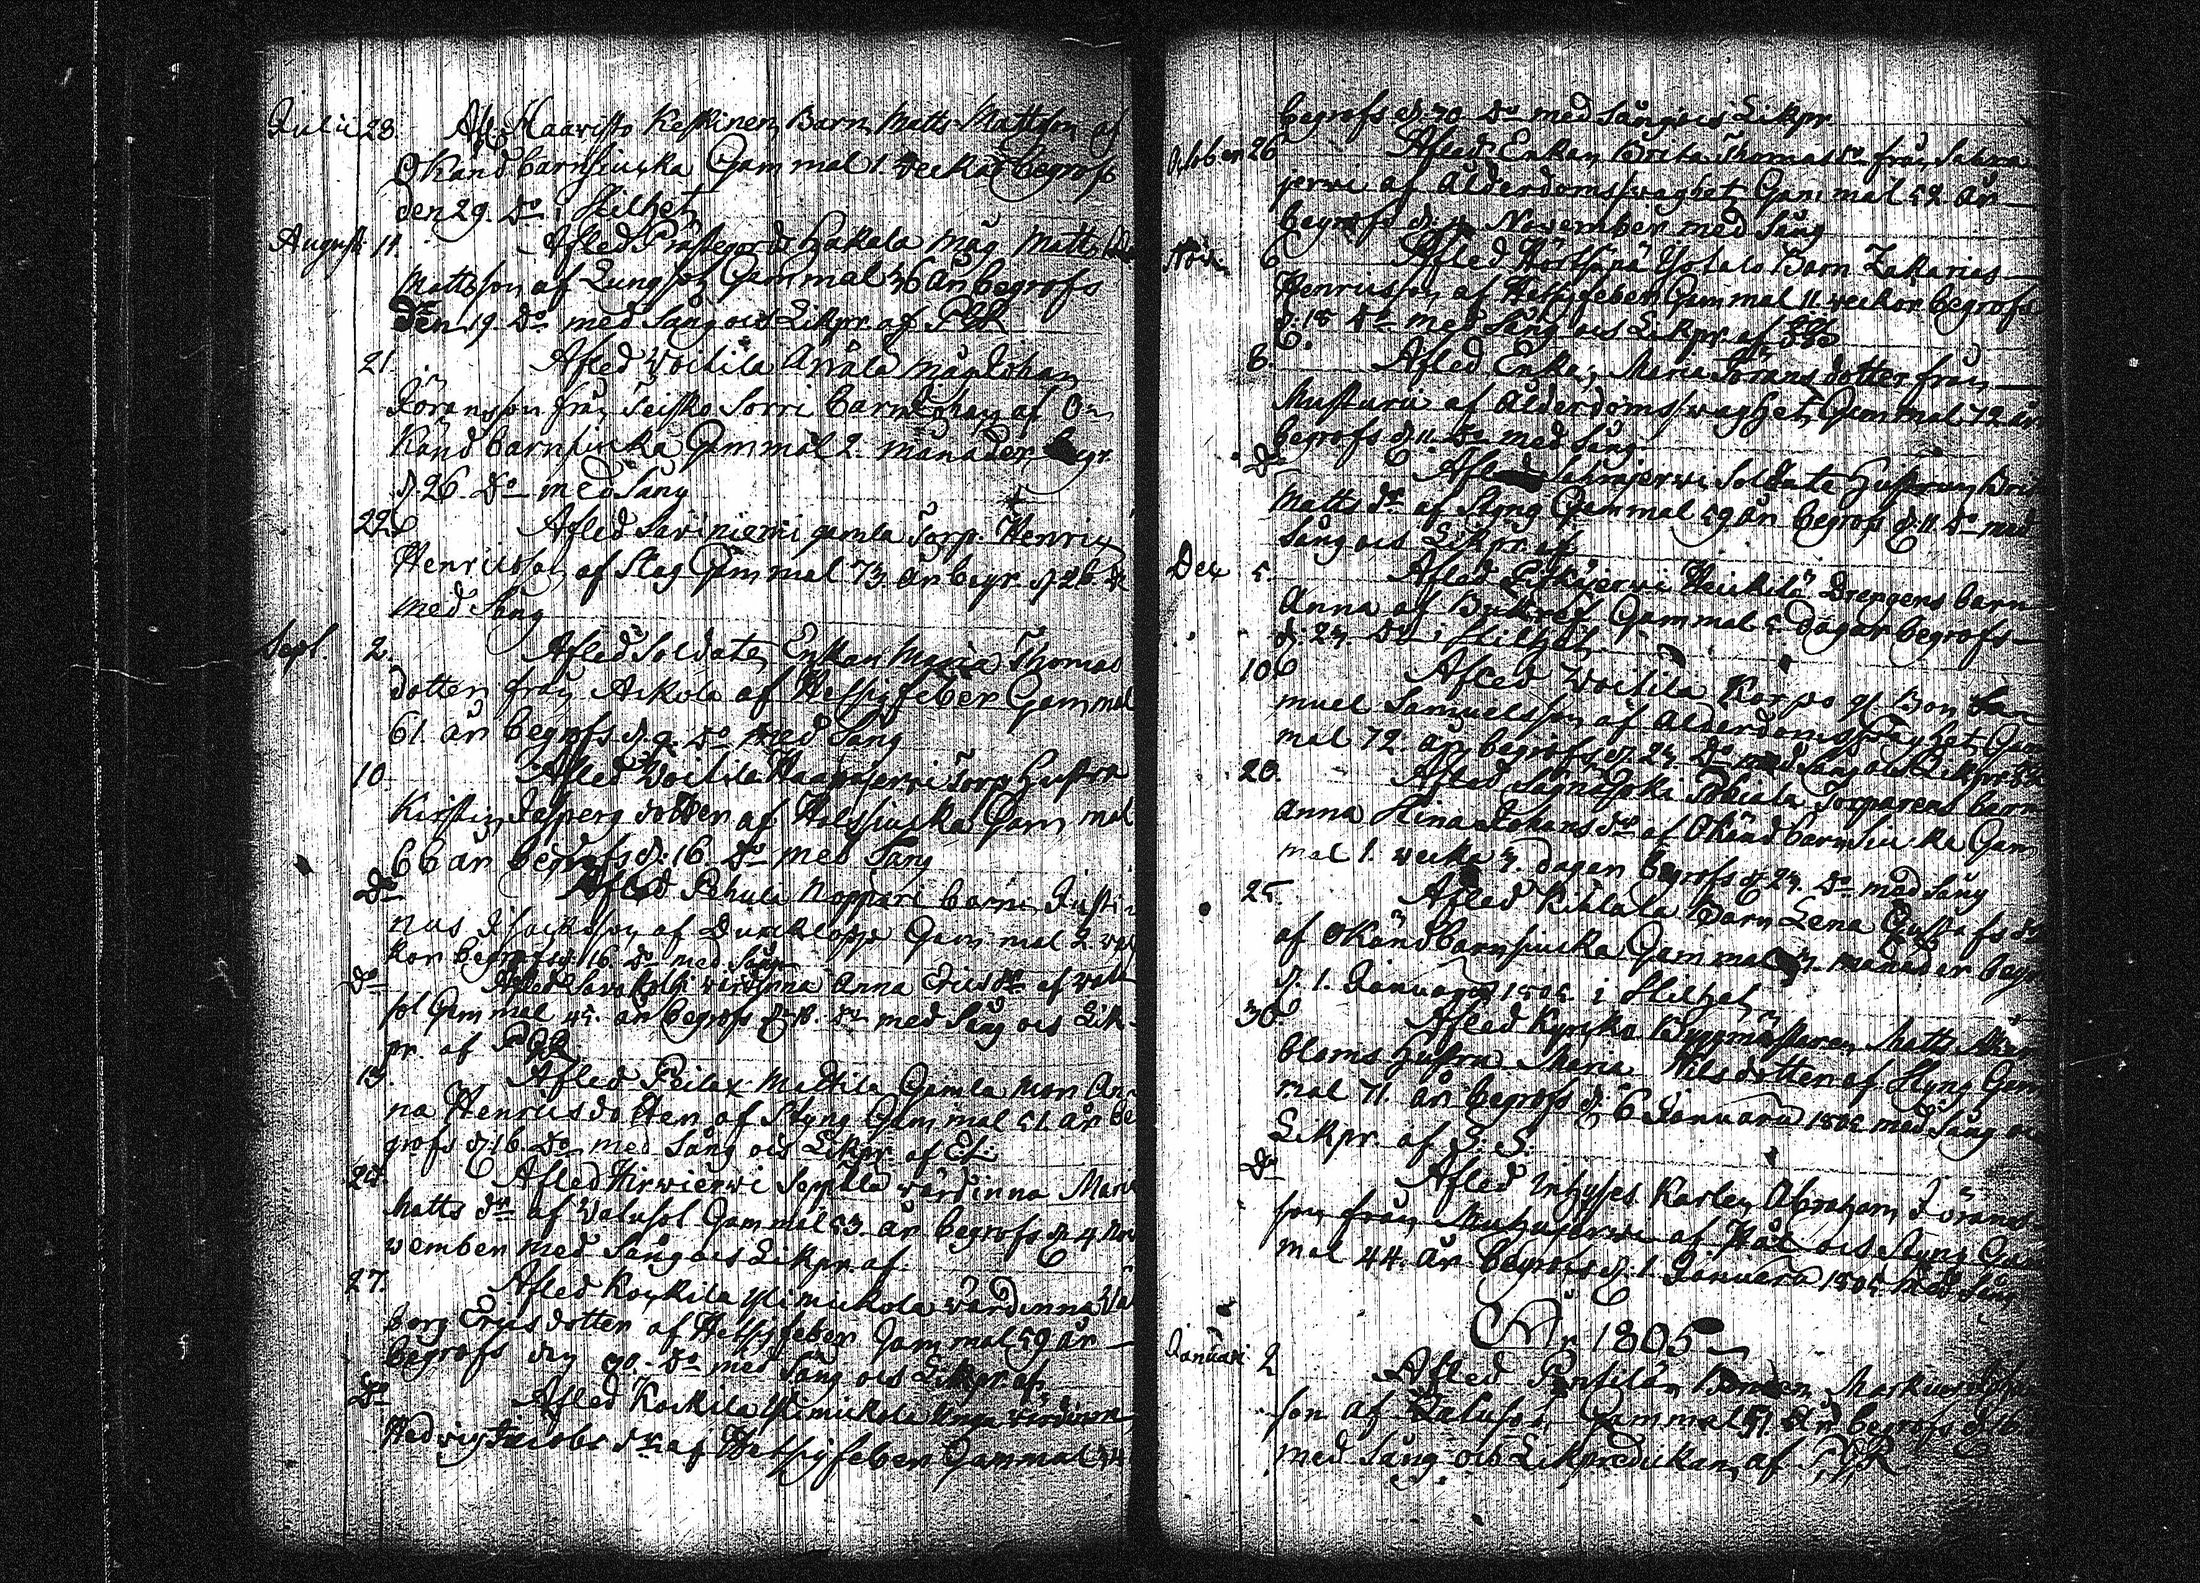 Julii 28. Afl. Haavisto Keskinen Barn Matts Mattson af
Okänd barnsiucka Gammal 1. veckas begrofs
den 29. Do i Stilhet
Augusti 11. Afled Prästegårds Hakala Måg Matts
Mattsson af Lungsot Gammal 36 år begrofs
den 19. Do med Sång och Likpr. af PGR
21. Afled Voitila Anåla Johan
Jöransson från Seisko Sorri barn Johan af O
känd barnsiucka Gammal 2. månader begr.
d. 26 Do med Sång
22. Afled Saviniemi gamla Torp. Henric
Henricsson af Slag Gammal 73. år begr. d. 26 Do
med Sång
Sept. 2. Afled Soldate Enkan Maria Thomas
dotter från Askola af Hetsig feber Gammal
61. år begrofs d. 9. Do med Sång
10. Afled Voitila Haapajerwi Torp. Hustru
Kirstin Jespers dotter af Halssiucka Gam mal
66 år begrofs d. 16. Do med Sång
Do Afled Pehula Noppari barn Justi
nus Isacksson af Gam mal 2 vec
kor begrofs d. 16. Do med Sång
Do Afled värdinna Anna Ericsdr af vatt
sot Gammal 45. år begrofs d. 18. Do med Sång och Lik
pr. af PGR
13. Afled Peilax Mattila Gamla Mor An
na Henricsdotter af Styng Gam mal 51. år be
grofs d. 16. Do med Sång och Likpr. af
24. Afled Hirwierwi Seppälä värdinna Maria
Matts dr af Gammal 53. år begrofs d. 4 No
vember med Sång och Likpr. af
27. Afled Koskila Ylimickola värdinna Val
borg Erics dotter af Hetsig feber Gammal 59 år
begrofs den 30. Do med Sång och Likpr. af
Do Afled Koskila Ylimickola Unga värdinna
Hedvig Jacobs dr af Hetsig feber Gammal 34
begrofs d. 30 Do med Sång och Likpr.
October 26 Afled Enkan Brita Thomas dr från Sahra
jerwi af Ålderdoms swaghet Gammal 52 år
begrofs d. November med Sång
Nov. 6 Afled Yotalo Barn Zakarias
Henricsson af Hetsig feber Gammal 11. veckor begrofs
d. 18 Do med Sång och Likpr. af
8. Afled Enkan Maria Jörans dotter från
Mustura af Ålderdoms swaghet Gammal 72 år
begrofs d. 11. Do med Sång.
Do Afled Sahrajerwi Soldate Hustrun Brita
Matts dr af Styng Gammal 59 år begrofs d. 11 Do med
Sång och Likpr. af
Dec 5. Afled Pitkäjerwi Heickilä Drengens barn
Anna af Bukref Gammal 5. dagar begrofs
d. 23. Do i Stilhet.
10 Afled Voitila Korpo gl. Bon Sa
muel Samuelsson af Ålderdoms swaghet Gam
mal 72. år begrofs d. 23 Do med Sång och Likpr.
20. Afled Sagnåjoki Torparens barn
Anna Stina Johans dr af Okänd barnsiucka Gam
mal 1. vecka 3. dagen begrofs d. 23. Do med Sång
25. Afled Kihlala Barn Lena Gustafs dr
af Okänd barnsiucka Gammal 3. månader begr
d. 1. Januarii 1805 i Stilhet
30. Afled Kyrcko Byggmästaren Matts Åker
bloms hustru Maria Nilsdotter af Styng Gam
mal 71. år begrofs d. 6 Januarii 1805 med Sång och
Likpr. af S. S.
Do Afled Inhyses Karlen Abraham Jörans
son från Muhujerwi af Håll och Styng Gam
mal 44. år begrofs d. 1 Januarii 1805 med Sång
År 1805
Januari 2 Afled Penkilän Bonen Markus Johan
son af Gammal 51 år begrofs d. 6
med Sång och Likpredikan af PGR